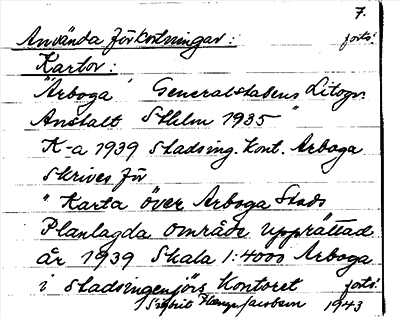 7.
Använda förkortningar: forts:
Kartor:
"Arboga" Generalstabens Litogr.
Anstalt Sthlm 1935"
K-a 1939 stadsing. kont. Arboga
skrives för
"Karta över Arboga Stads
Planlagda område upprättad
år 1939 Skala 1:4000 Arboga
i stadsingenjörs kontoret forts:
Jacobson 1943